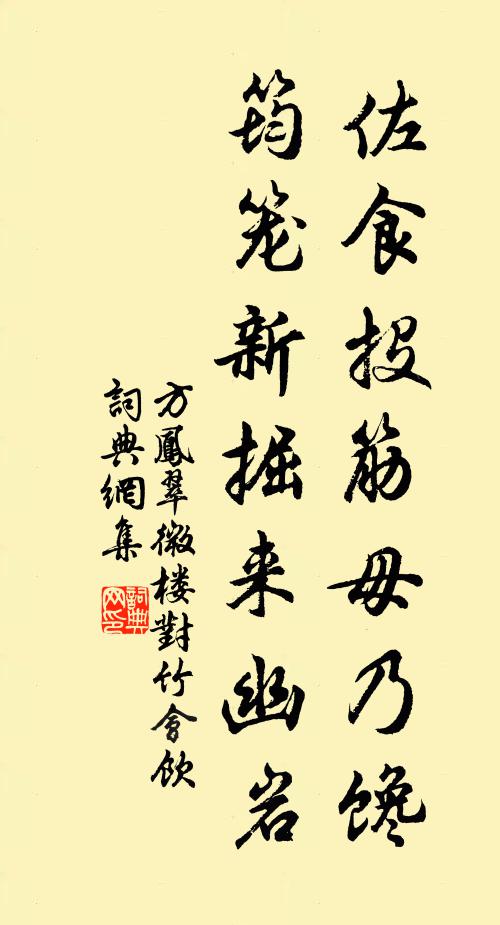 佐食投筋毋乃馋
筠笼新掘来幽岩
方鳳翠微楼對竹會飲
詞典網集
詞典网印